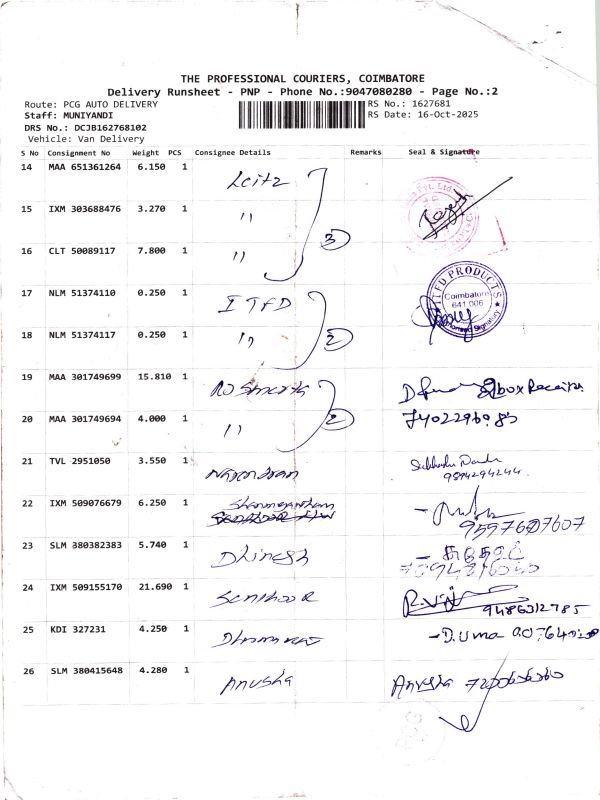 THE PROFESSIONAL COURIERS, COIMBATORE
Delivery Runsheet - PNP - Phone No.:9047080280 - Page No.:2
Route: PCG AUTO DELIVERY RS No.: 1627681
Staff: MUNIYANDI RS Date: 16-Oct-2025
DRS No.: DCJB162768102
Vehicle: Van Delivery
S No Consignment No Weight PCS Consignee Details Remarks Seal & Signature
14 MAA 651361264 6.150 1 Leitz
15 IXM 303688476 3.270 1 " 3
16 CLT 50089117 7.800 1 "
17 NLM 51374110 0.250 1 ITFD ITFD PRODUCTS Coimbatore 641 006
18 NLM 51374117 0.250 1 " 2
19 MAA 301749699 15.810 1
20 MAA 301749694 4.000 1 " 2
21 TVL 2951050 3.550 1 9894294244
22 IXM 509076679 6.250 1 9597607607
23 SLM 380382383 5.740 1 Dhinesh
24 IXM 509155170 21.690 1 Senthoor 9486312785
25 KDI 327231 4.250 1 - D. Uma
26 SLM 380415648 4.280 1 Anusha Anusha
PCG